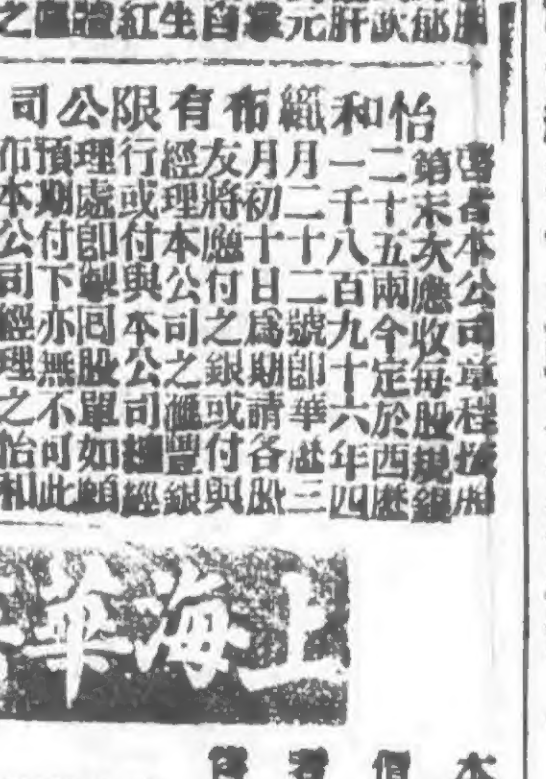 怡和織布有限公司
啓者本公司章程
第末次應收每股規銀
二十五兩今定於西歷
一千八百九十六年四
月二十二號即華歷三
月初十日爲期請各股
友將應付之銀或付與
經理本公司之滙豐銀
行或付與本公司總經
理處即製囘股單如願
預期付下亦無不可此
布本公司經理之怡和
上海華